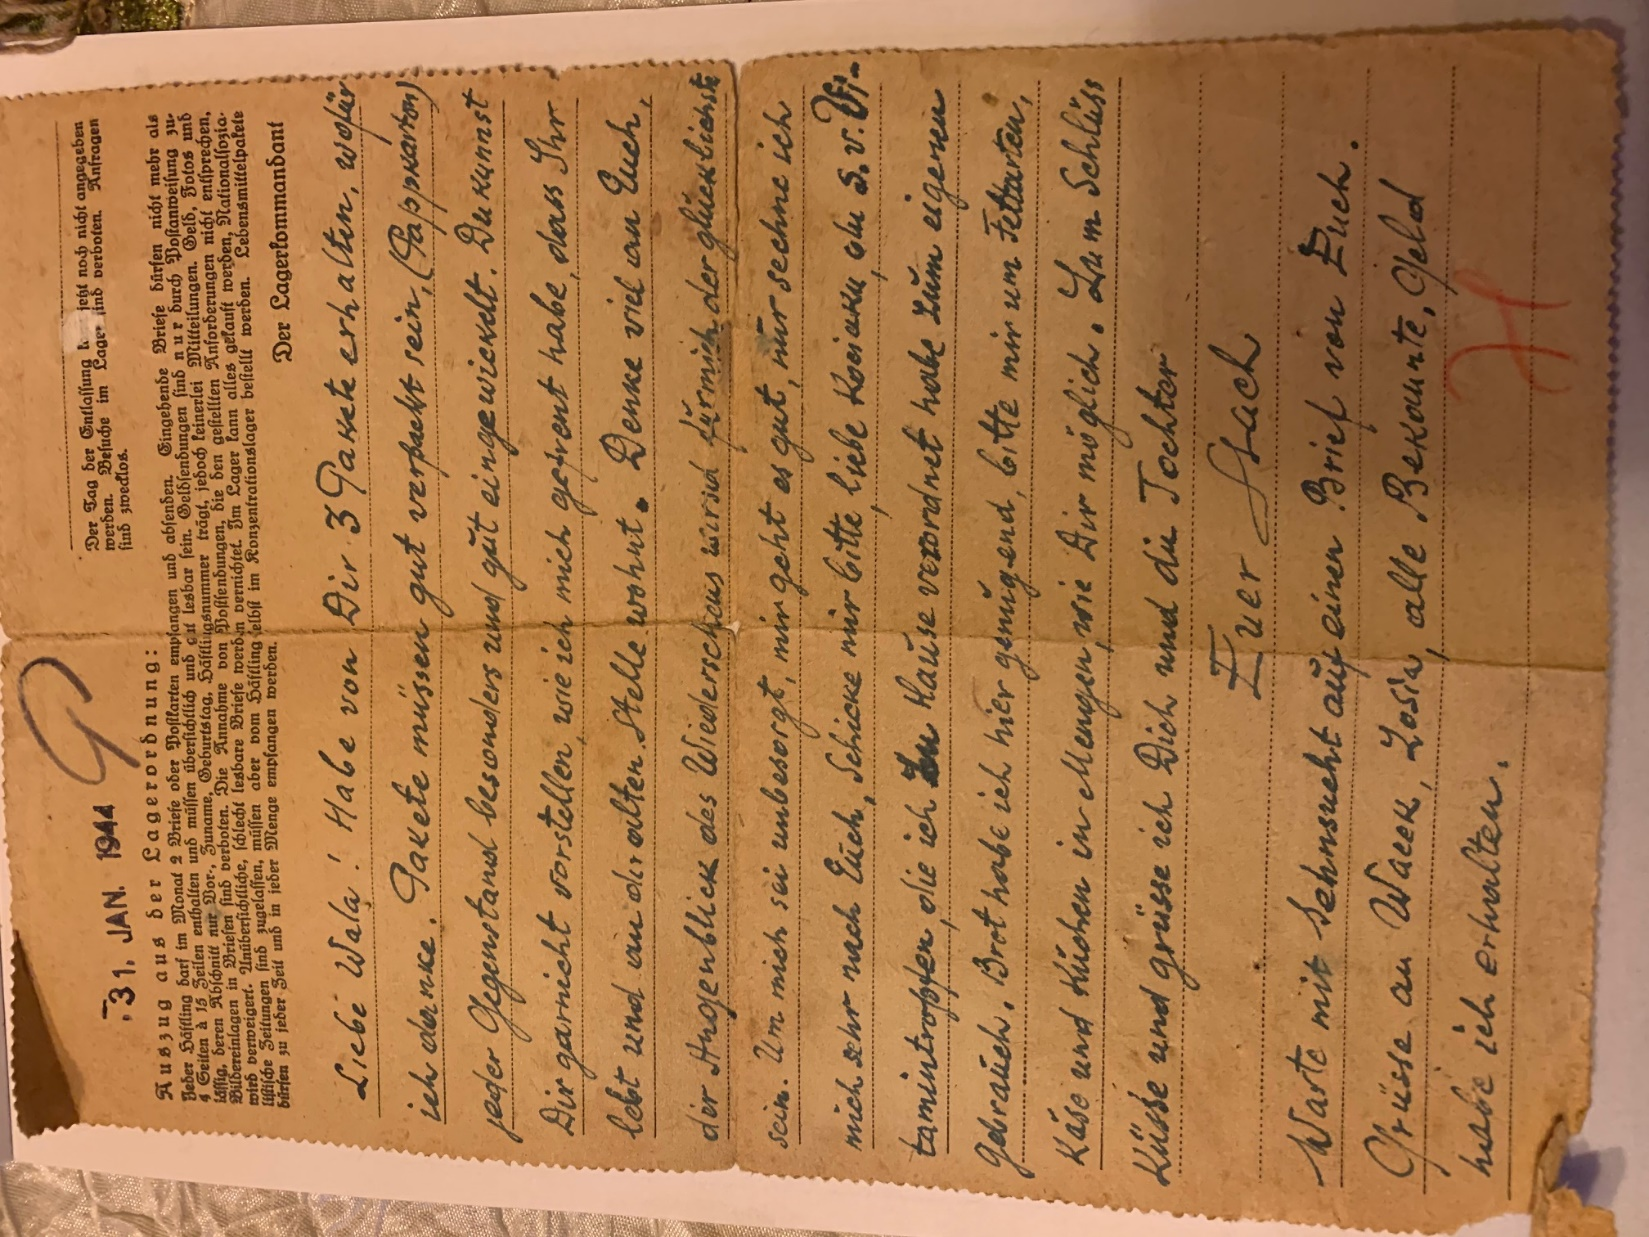 31. JAN. 1944
Der Tag der Entlassung jetzt noch nicht angegeben
werden. Besuche im Lager sind verboten. Anfragen
sind zwecklos.
Auszug aus der Lagerordnung:
Jeder Häftling darf im Monat 2 Briefe oder Postkarten empfangen und absenden. Eingehende Briefe dürfen nicht mehr als
4 Seiten à 15 Zeilen enthalten und müssen übersichtlich und gut lesbar sein. Geldsendungen sind nur durch Postanweisung zu-
lässig, deren Abschnitt nur Vor-, Zuname, Geburtstag, Häftlingsnummer trägt, jedoch keinerlei Mitteilungen. Geld, Fotos und
Bildereinlagen in Briefen sind verboten. Die Annahme von Postsendungen, die den gestellten Anforderungen nicht entsprechen,
wird verweigert. Unübersichtliche, schlecht lesbare Briefe werden vernichtet. Im Lager kann alles gekauft werden, Nationalsozia-
listische Zeitungen sind zugelassen, müssen aber vom Häftling selbst im Konzentrationslager bestellt werden. Lebensmittelpakete
dürfen zu jeder Zeit und in jeder Menge empfangen werden.
Der Lagerkommandant
Liebe Wala! Habe von Dir 3 Pakete erhalten, wofür
ich danke. Pakete müssen gut verpackt sein, (Pappkarton)
jeder Gegenstand besonders und gut eingewickelt. Du kannst
Dir garnicht vorstellen, wie ich mich gefreut habe, dass Ihr
lebt und an der alten Stelle wohnt. Denke viel an Euch,
der Augenblick des Wiedersehens wird für mich der glücklichste
sein. Um mich sei unbesorgt, mir geht es gut, nur sehne ich
mich sehr nach Euch. Schicke mir bitte, liebe du s. v.
tamintropfen, die ich zu Hause verordnet habe zum eigenen
Gebrauch. Brot habe ich hier genügend, bitte mir um Fettarten,
Käse und Kuchen in Mengen, wie Dir möglich. Zum Schlüss
Küsse und grüsse ich Dich und die Tochter
Euer Stach
Warte mit Sehnsucht auf einen Brief von Euch.
Grüsse an Wacek, Zosia, alle Bekannte, Geld
habe ich erhalten.